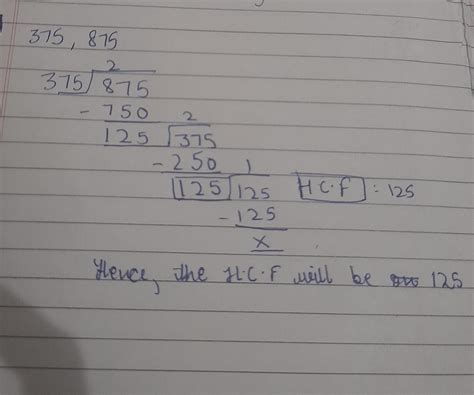 375, 875
2
375) 875
- 750 2
125 375
- 250 1
125 125 H.C.F : 125
- 125
x
Hence, the H.C.F will be 125